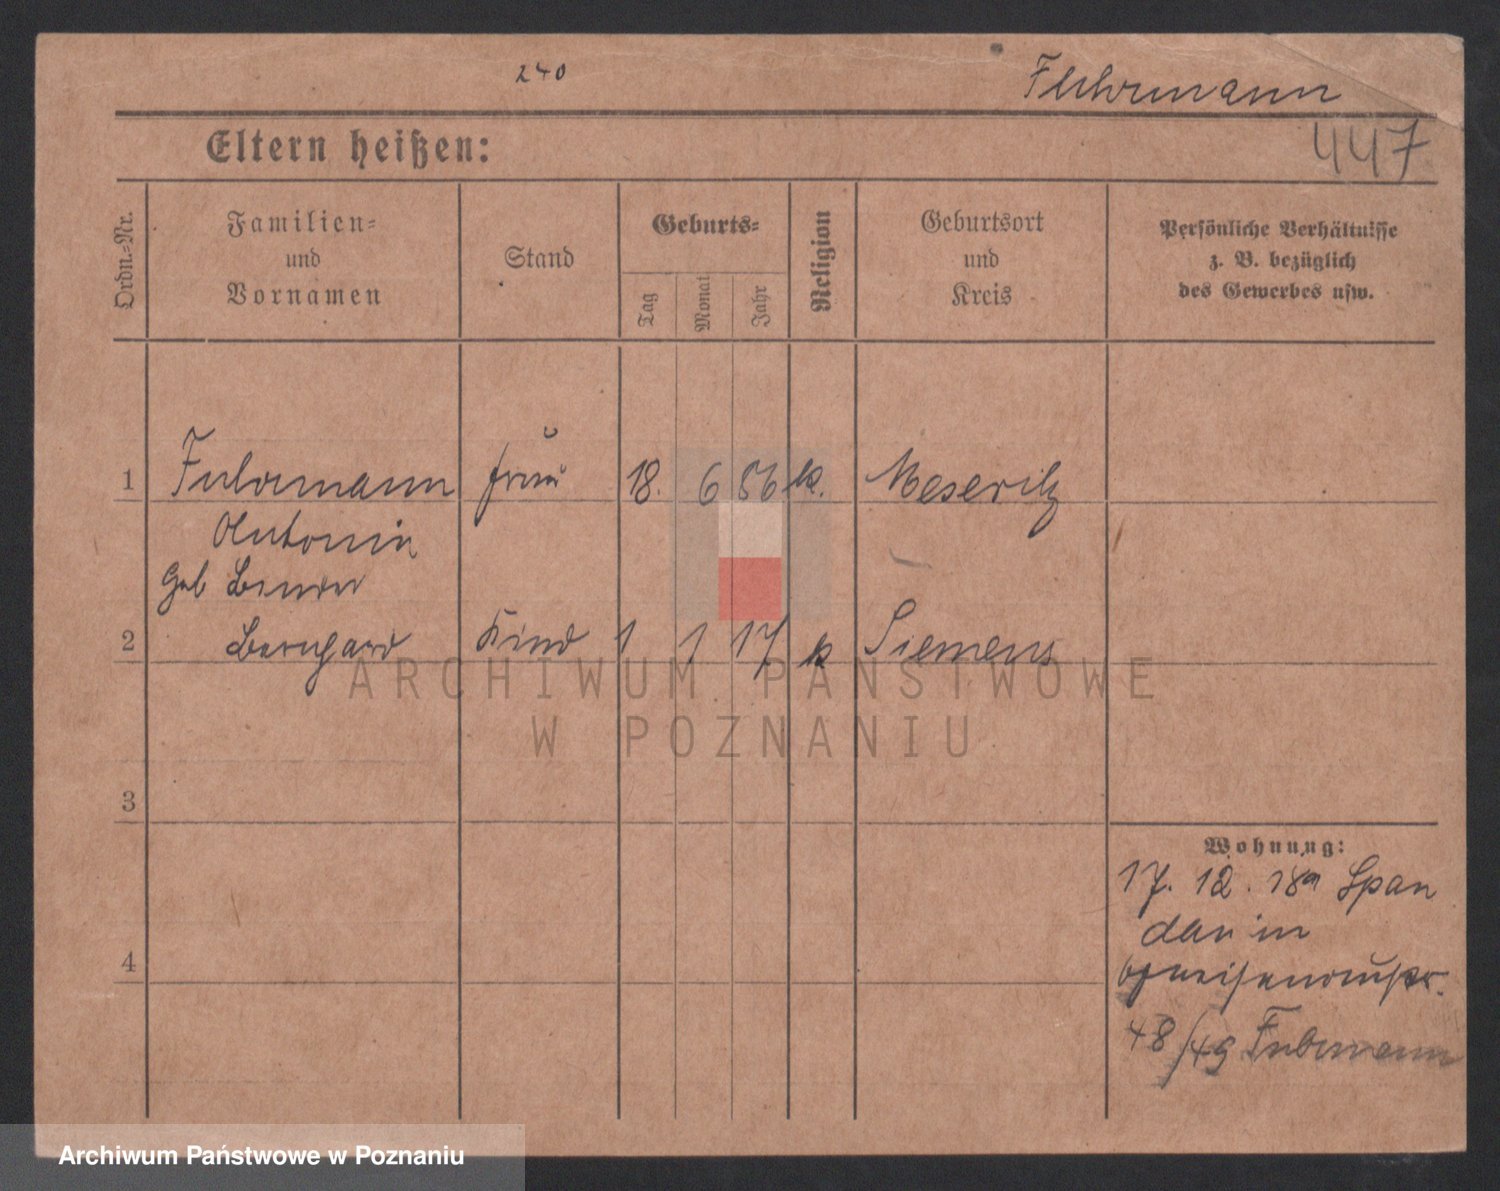 240
Fuhrmann
447
Eltern heißen:
Ordn.-Nr.
Familien-
und
Vornamen
Stand
Geburts-
Tag
Monat
Jahr
Religion
Geburtsort
und
Kreis
Persönliche Verhältnisse
z. B. bezüglich
des Gewerbes usw.
1 Fuhrmann frau 18. 6 56 k. Meseritz
Antonie
Geb
2 Bernhard Kind 1 1 17 k Siemens
ARCHIWUM PAŃSTWOWE
W POZNANIU
3
4
Wohnung:
17. 12. 18 Span
dau in
48/49 Fuhrmann
Archiwum Państwowe w Poznaniu